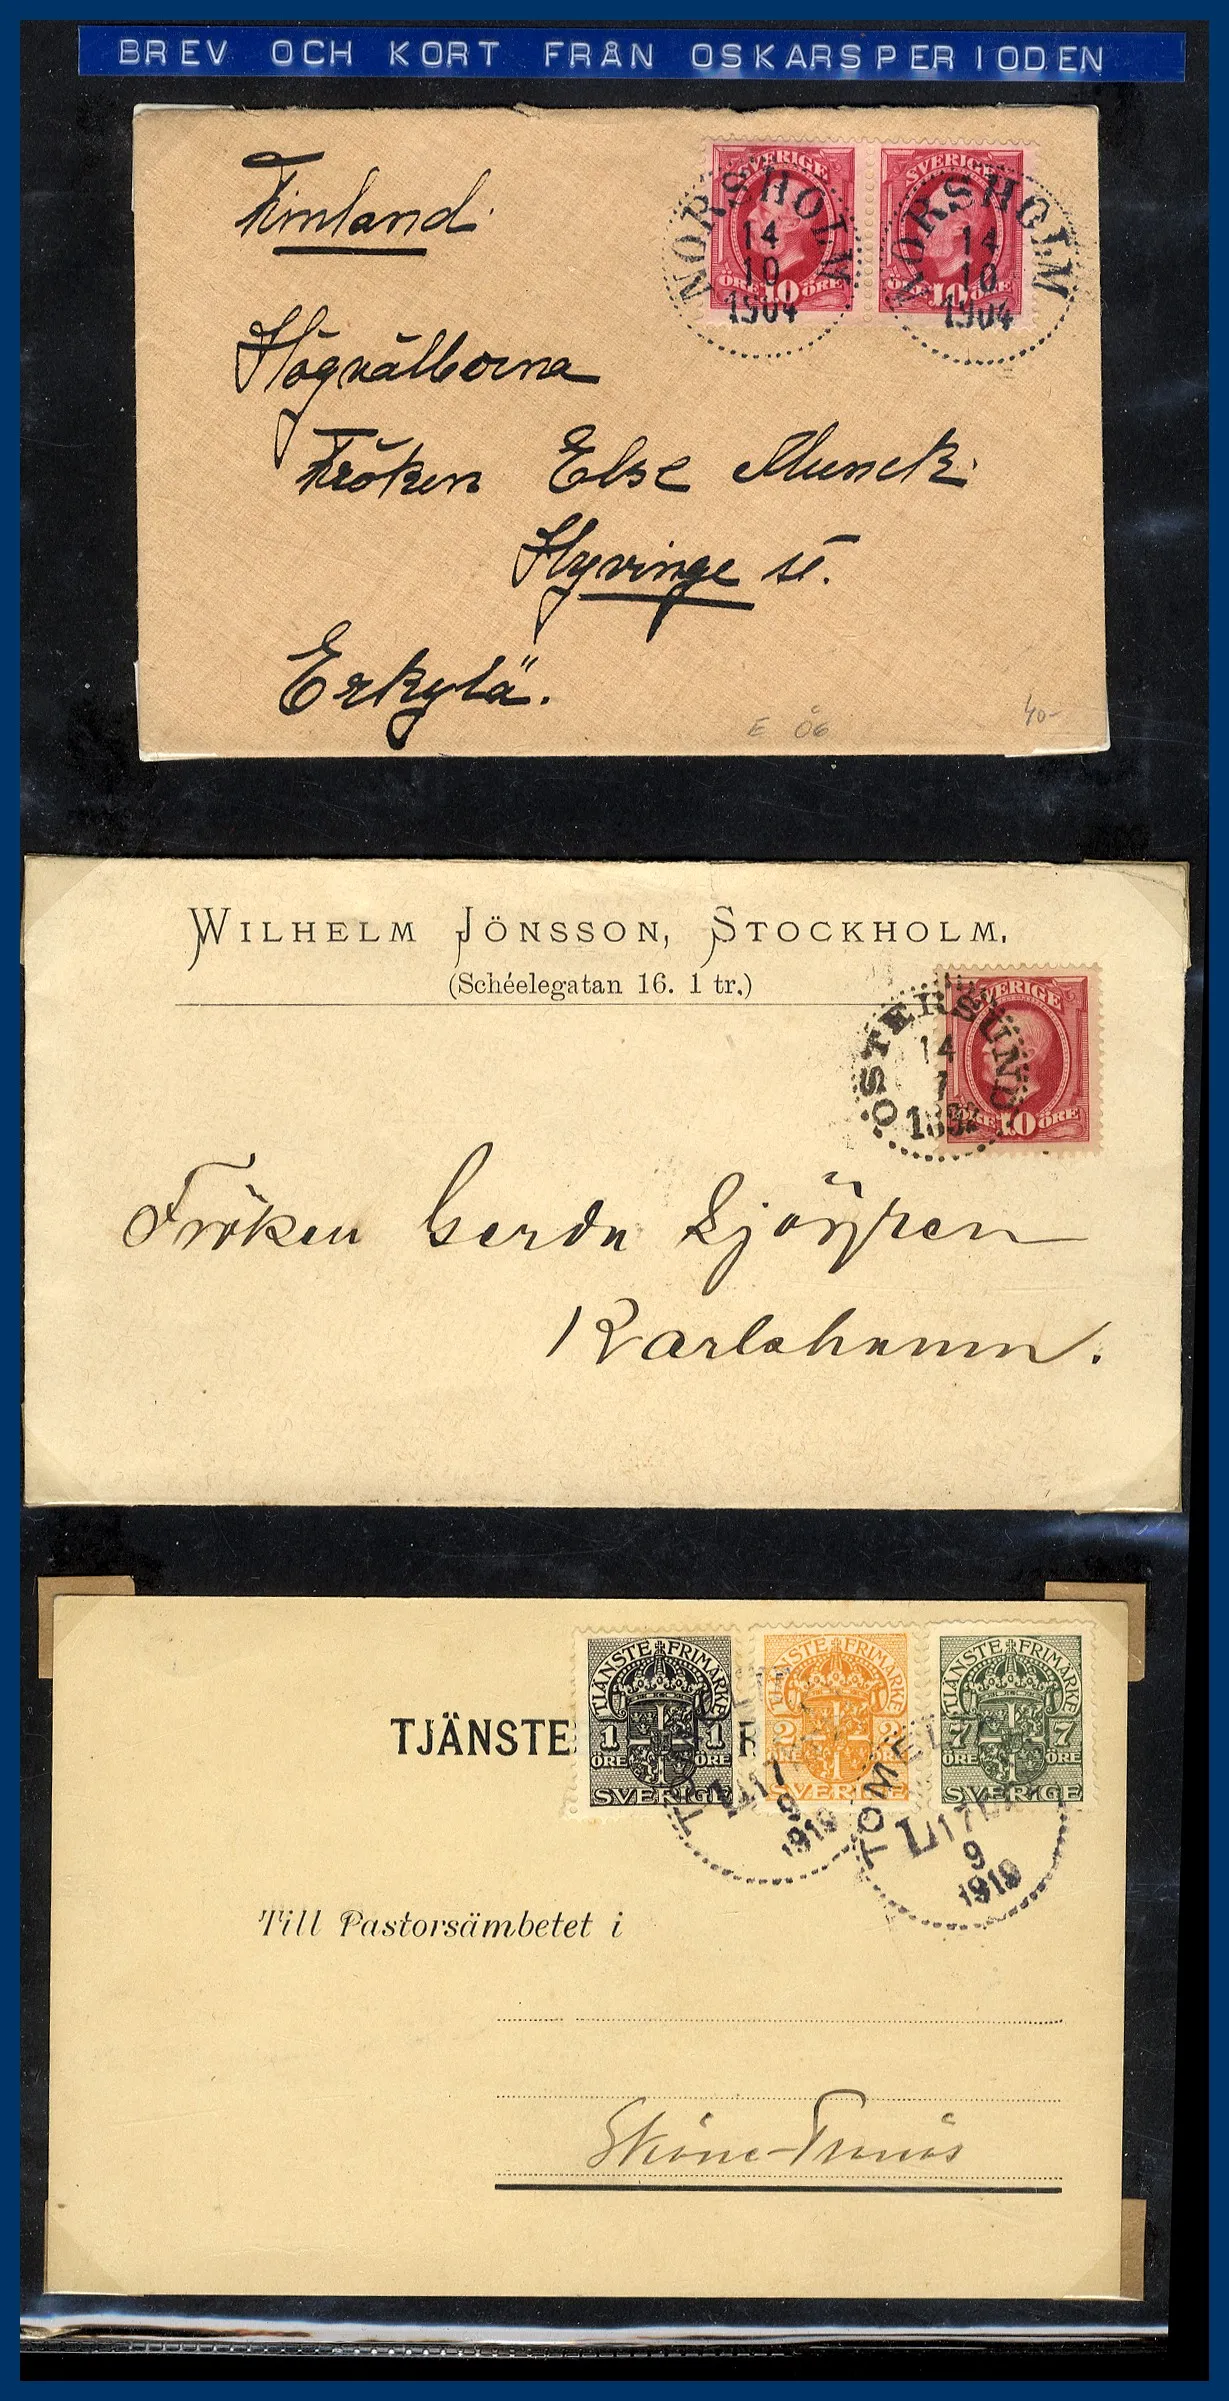 BREV OCH KORT FRÅN OSKARSPERIODEN
SVERIGE
ÖRE 10 ÖRE
SVERIGE
10 ÖRE
NORSHOLM
14
10
1904
NORSHOLM
14
10
1904
Finland.
Högvälborna
Fröken Else Munck.
Hyvinge st.
Erkylä.
E Ö6
40-
WILHELM JÖNSSON, STOCKHOLM.
(Schéelegatan 16. 1 tr.)
SVERIGE
10 ÖRE
ÖSTERSUND
14
Fröken Gerda Sjögren
Karlshamn.
TJÄNSTE
TJÄNSTE FRIMÄRKE
1 1
ÖRE ÖRE
SVERIGE
TJÄNSTE FRIMÄRKE
2 2
ÖRE ÖRE
SVERIGE
TJÄNSTE FRIMÄRKE
7 7
ÖRE ÖRE
SVERIGE
17
9
1919
TOMEL
L
17
9
1919
Till Pastorsämbetet i
Skåne-Tranås